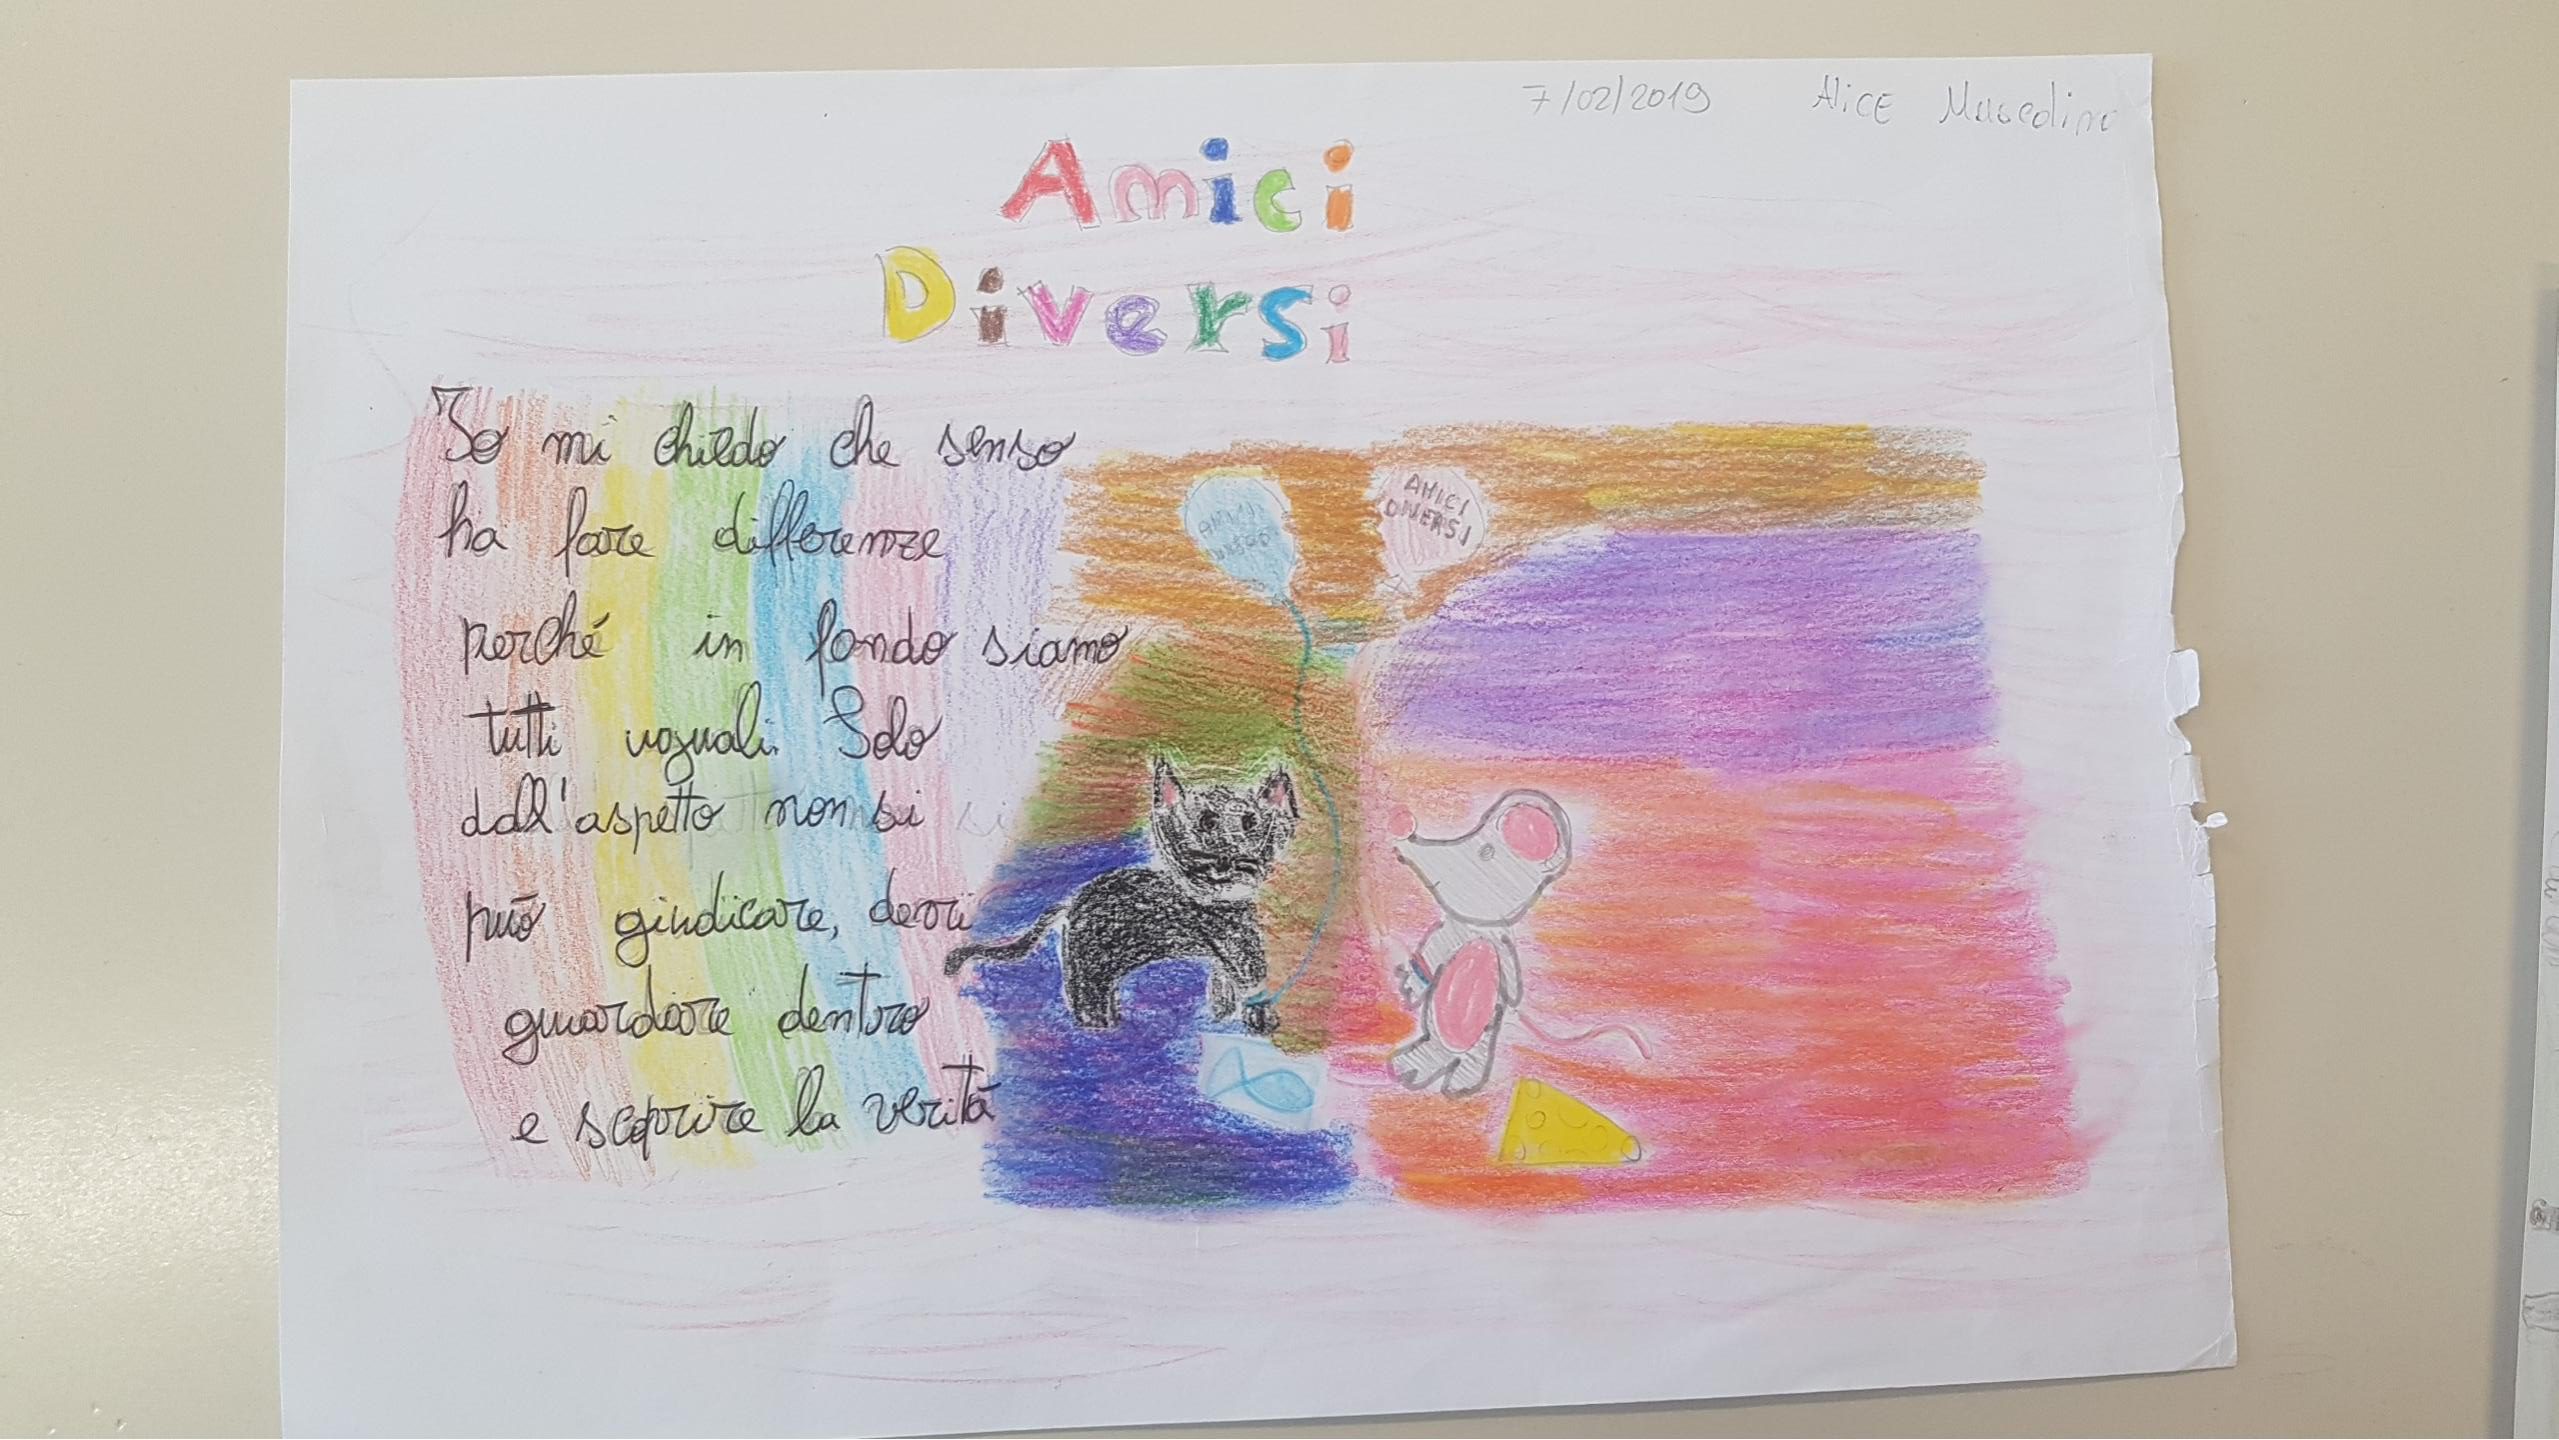 7/02/2019 Alice Muscolino
Amici
Diversi
Io mi chiedo che senso
ha fare differenze
perché in fondo siamo
tutti uguali. Solo
dall'aspetto non si
può giudicare, devi
guardare dentro
e scoprire la verità
AMICI
DIVERSI